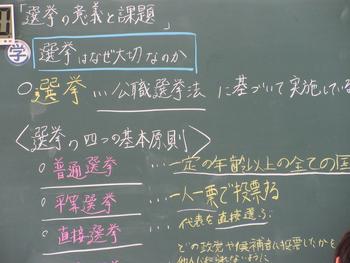 「選挙の意義と課題」
学 選挙はなぜ大切なのか
○選挙…公職選挙法に基づいて実施している
〈選挙の四つの基本原則〉
○普通選挙…一定の年齢以上の全ての国
○平等選挙…一人一票で投票する
○直接選挙…代表を直接選ぶ
どの政党や候補者に投票したかを
他人に知られないように